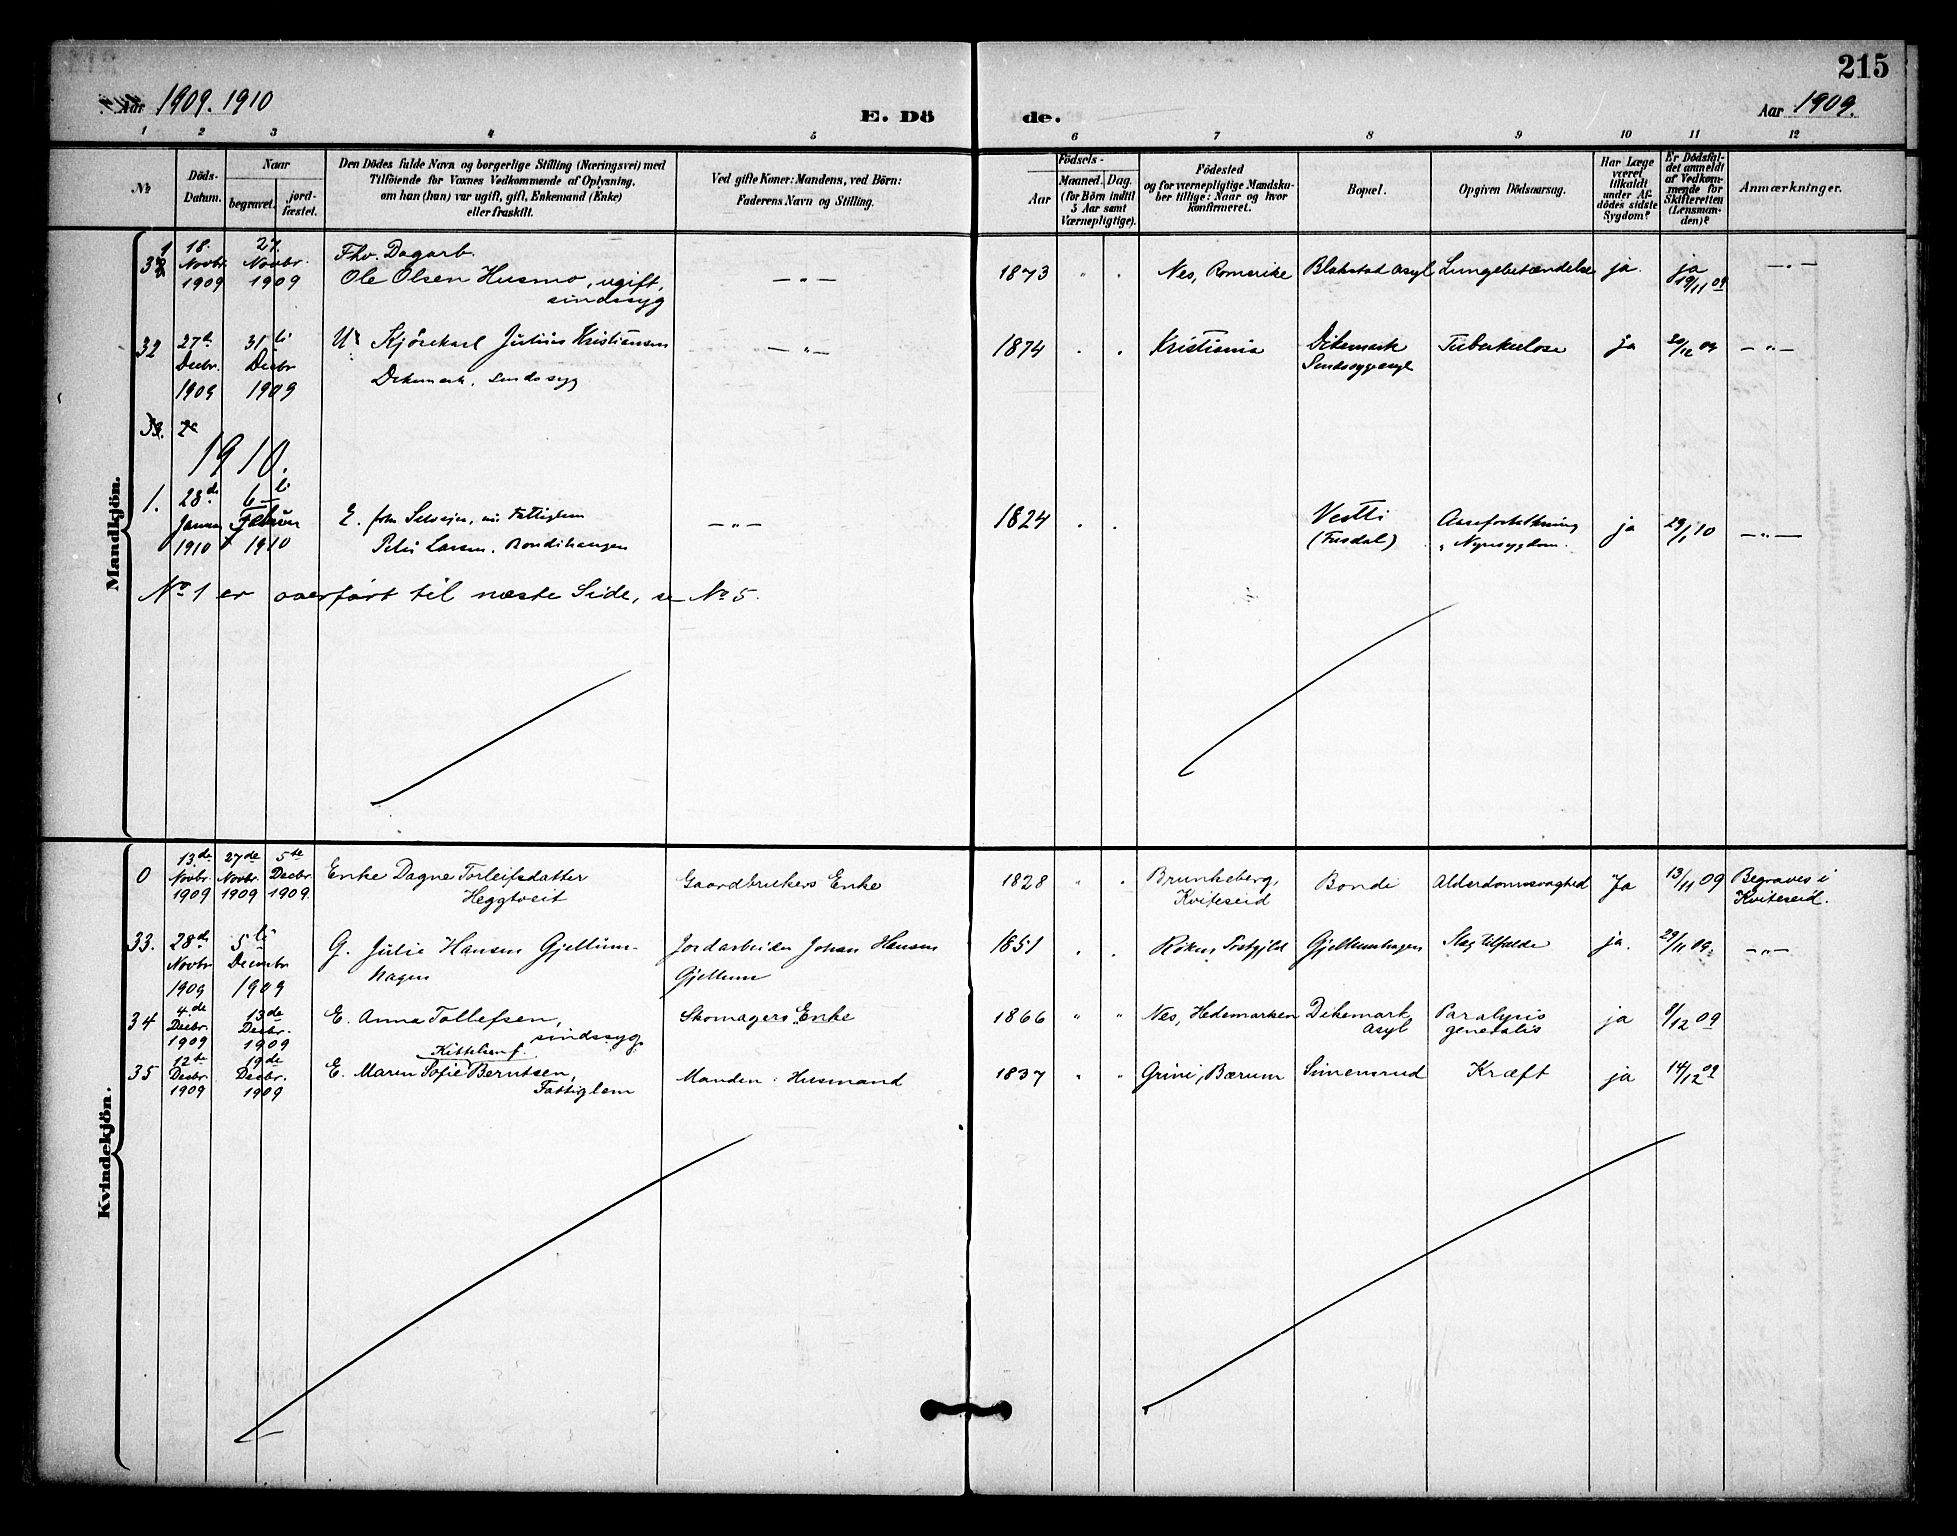 215
Aar 1909. 1910
E. Döde.
Aar 1909.
1 2 3 4 5 6 7 8 9 10 11 12
No.
Döds-Datum.
Naar
begravet.
jordfæstet.
Den Dödes fulde Navn og borgerlige Stilling (Næringsvei) med
Tilföiende for Voxnes Vedkommende af Oplysning,
om han (hun) var ugift, gift, Enkemand (Enke)
eller fraskilt.
Ved gifte Koner: Mandens, ved Börn:
Faderens Navn og Stilling.
Födsels-
Aar
Maaned. Dag.
(for Börn indtil
5 Aar samt
Værnepligtige).
Födested
og for værnepligtige Mandskaber tillige: Naar og hvor
Konfirmeret.
Bopæl.
Opgiven Dödsaarsag.
Har Læge
været
tilkaldt
under Afdödes sidste
Sygdom?
Er Dödsfaldet anmeldt
af Vedkommende for
Skifteretten
(Lensmanden)?
Anmærkninger.
Mandkjön.
31
18. Novbr. 1909
27. Novbr. 1909
Fhv. Dagarb.
Ole Olsen Husmo, ugift,
sindssyg
— " —
1873 " .
Nes, Romerike
Blakstad Asyl
Lungebetændelse
ja.
ja 19/11 09
— " —
32
27de Decbr. 1909
31te Decbr 1909
U. Kjörekarl Julius Kristiansen
Dikemark, sindssyg
— " —
1874 . .
Kristiania
Dikemark
Sindssygeasyl
Tuberkulose
ja
12 09
— " —
33.
1910.
1.
28de Januar 1910
6te Februar 1910
E. Fattiglem
Peter Larsen, Bondihaugen
— " —
1824 . .
Vestli
(Fusdal)
Aareforkalkning
Nyresygdom.
ja
29/1 10
— " —
No 1 er overført til næste Side, se No 5.
Kvindekjön.
0
13de Novbr. 1909
27de Novbr. 1909
5te Decbr. 1909.
Enke Dagne Torleifsdatter
Heggtveit
Gaardbrukers Enke
1828 " .
Brunkeberg,
Kviteseid
Bondi
Alderdomssvaghed
Ja
13/11 09
Begraves i
Kviteseid.
33.
28de Novbr 1909
5te Decembr 1909
G. Julie Hansen Gjellum-
hagen
Jordarbeider Johan Hansen
Gjellum
1851 . .
Røken Prstgjld
Gjellumhagen
Slagtilfælde
ja.
29/11 09.
— " —
34
4.de Decbr. 1909
13de Decbr. 1909
E. Anna Tollefsen,
sindssyg.
Skomagers Enke
1866 " "
Nes, Hedemarken
Dikemark
asyl
Paralysis
generalis
ja
8/12 09
35
12te Decbr. 1909
19de Decbr. 1909
Kittelsen f.
E. Maren Sofie Berntsen,
Fattiglem
Manden: Husmand
1837 " "
Grini, Bærum
Simensrud
Kræft
ja
14/12 09